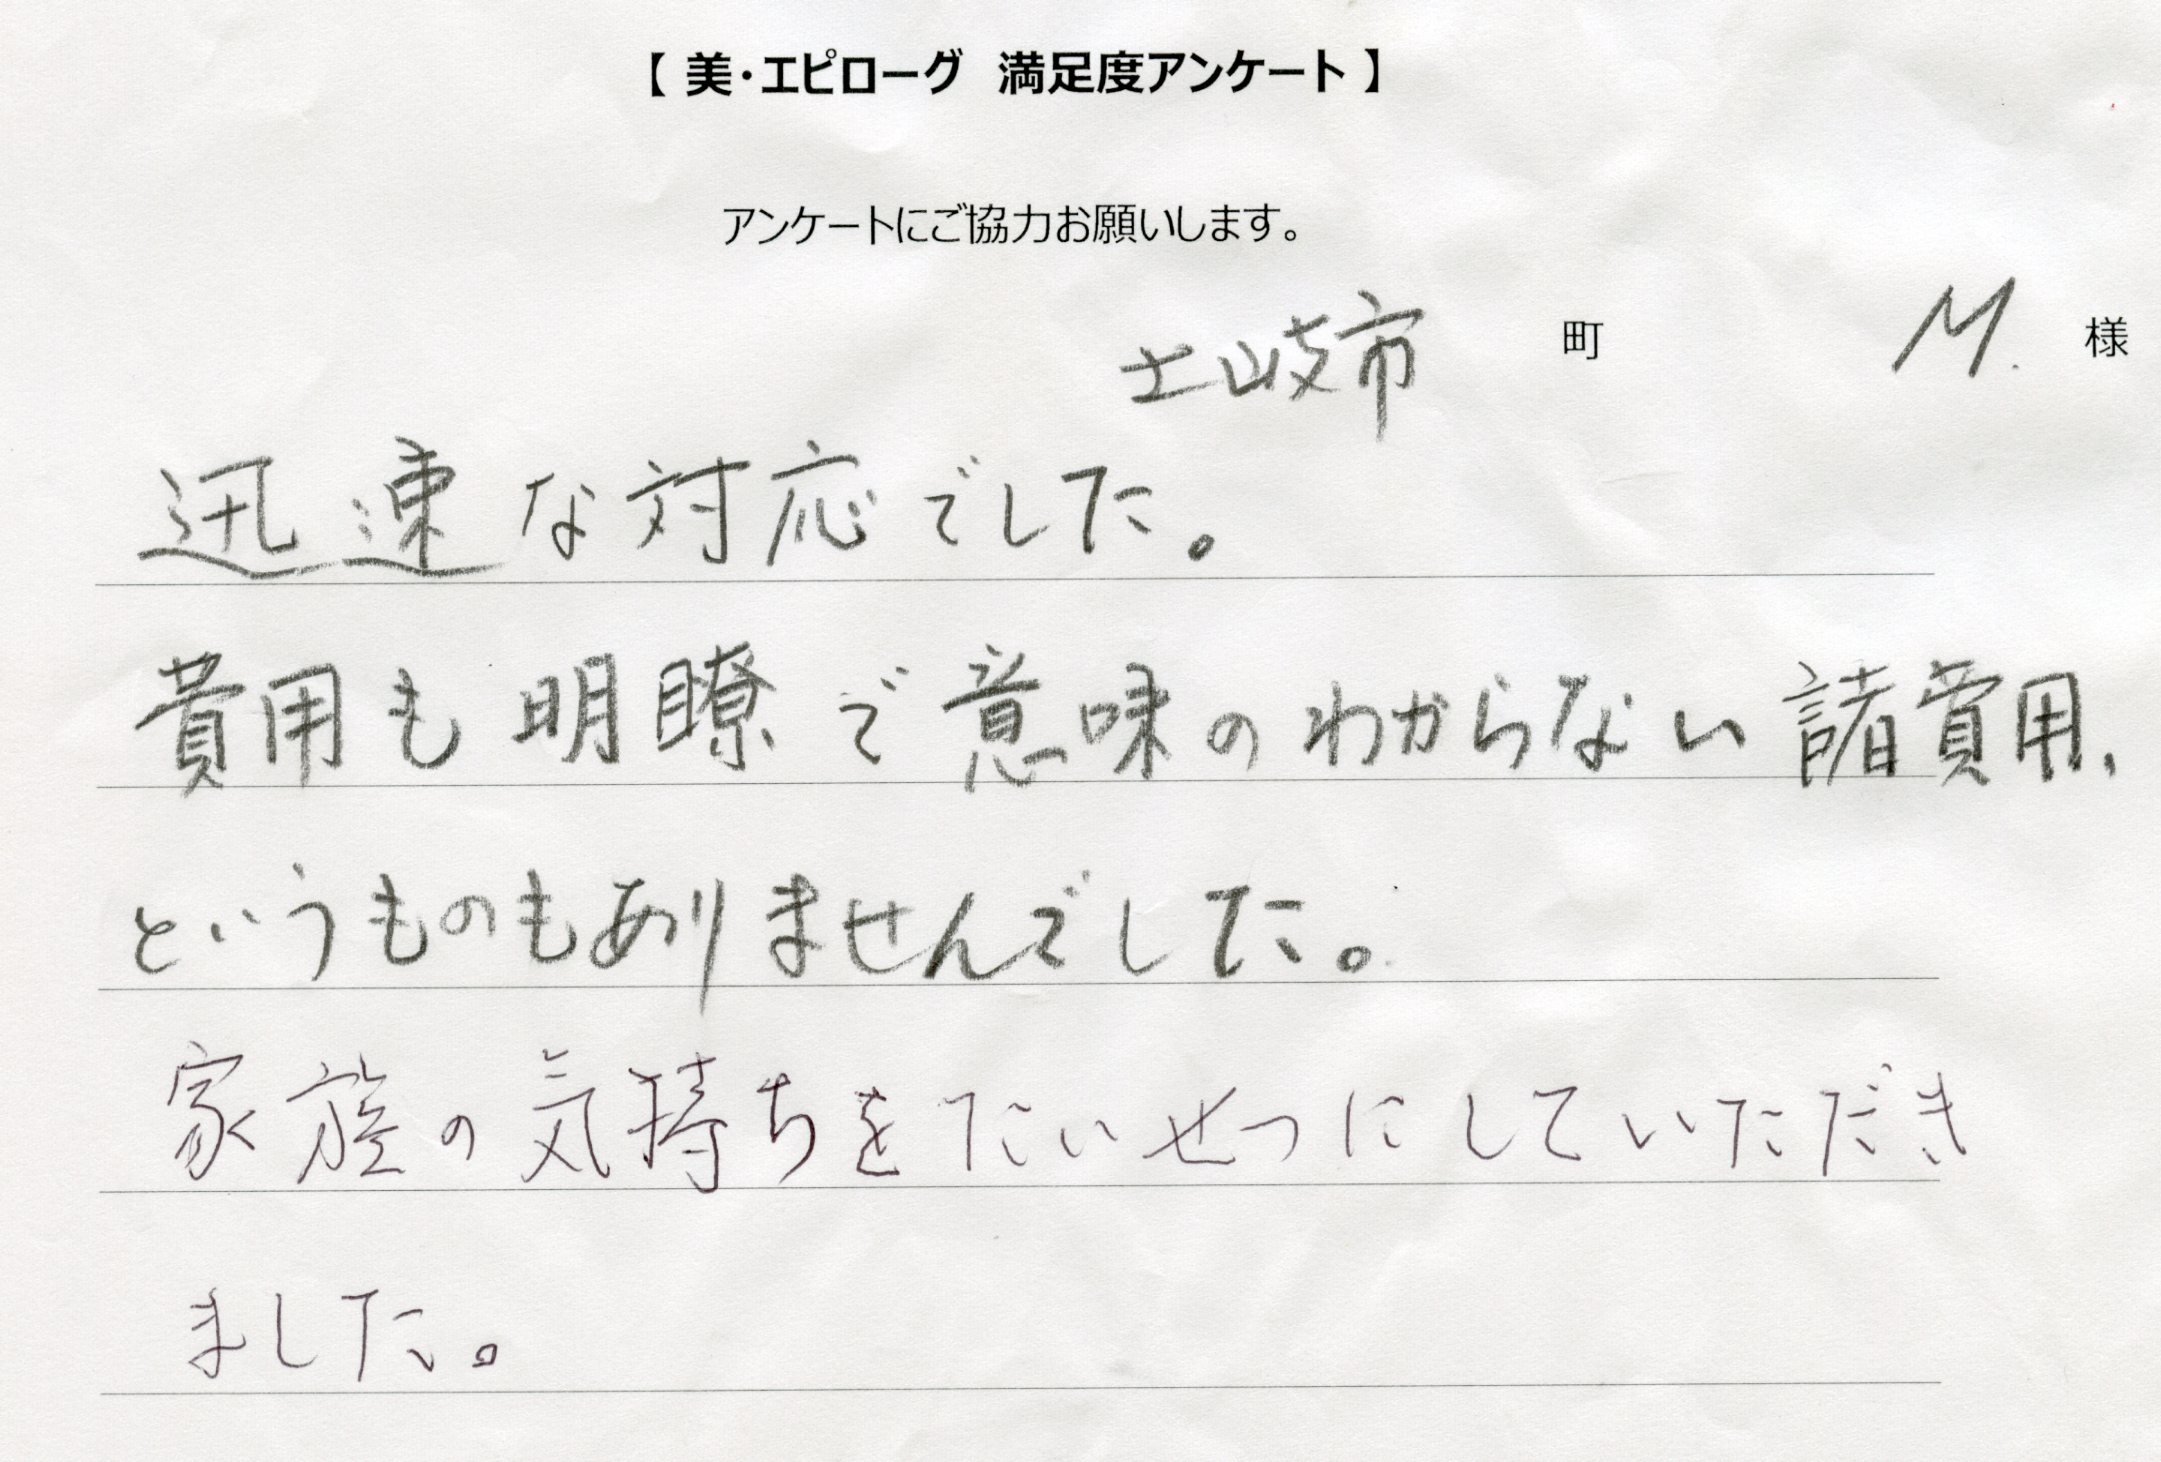 【 美・エピローグ 満足度アンケート 】
アンケートにご協力お願いします。
土岐市 町 M. 様
迅速な対応でした。
費用も明瞭で意味のわからない諸費用、
というものもありませんでした。
家族の気持ちをたいせつにしていただき
ました。